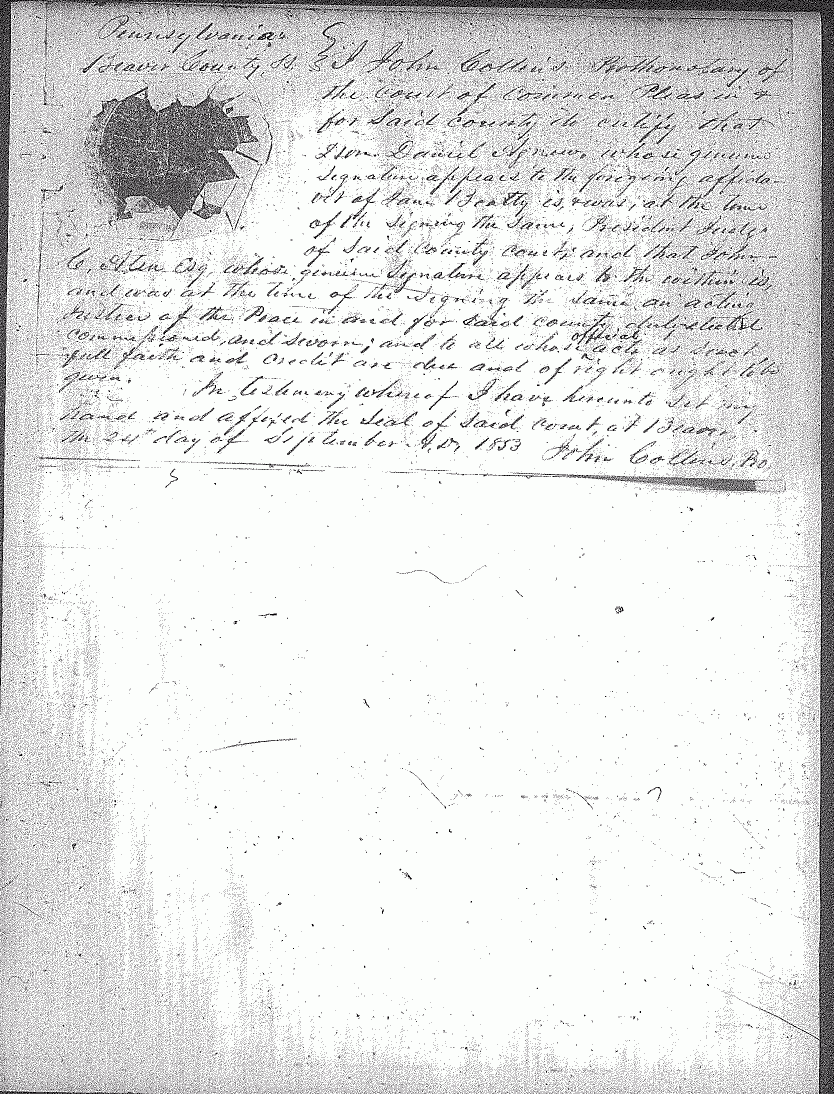 Pennsylvania
Beaver County, Ss. I John Collins Prothonotary of
the court of Common Pleas in &
for said county do certify that
Hon. Daniel Agnew, whose genuine
signature appears to the foregoing affida-
vit of Jane Beatty is, & was, at the time
of the signing the same, President Judge
of said County court; and that John
C. Aten Esq, whose genuine signature appears to the within is,
and was at the time of the signing the same an acting
Justice of the Peace in and for said county, duly elected
commissioned, and sworn; and to all whose official acts as such
full faith and credit are due and of right ought to be
given.
In testimony whereof I have hereunto set my
hand and affixed the seal of said court, at Beaver,
the 24th day of September A.D. 1853 John Collins, Pro.